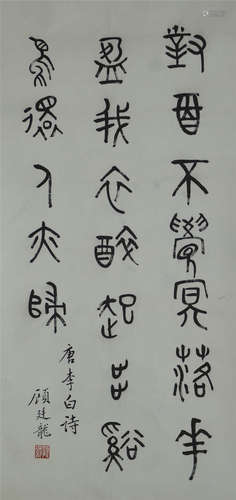 對酉不覺冥落華
盈我衣醉起步谿
鳥還人亦歸
唐李白詩
顧廷龍